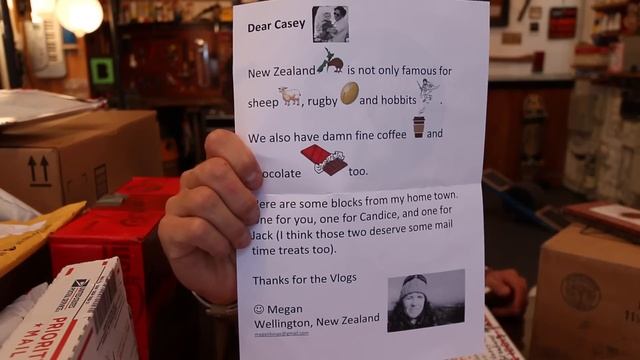 Dear Casey
New Zealand is not only famous for
sheep , rugby and hobbits .
We also have damn fine coffee and
ocolate too.
ere are some blocks from my home town.
ne for you, one for Candice, and one for
Jack (I think those two deserve some mail
time treats too).
Thanks for the Vlogs
☺ Megan
Wellington, New Zealand
PRIORITY
MAIL